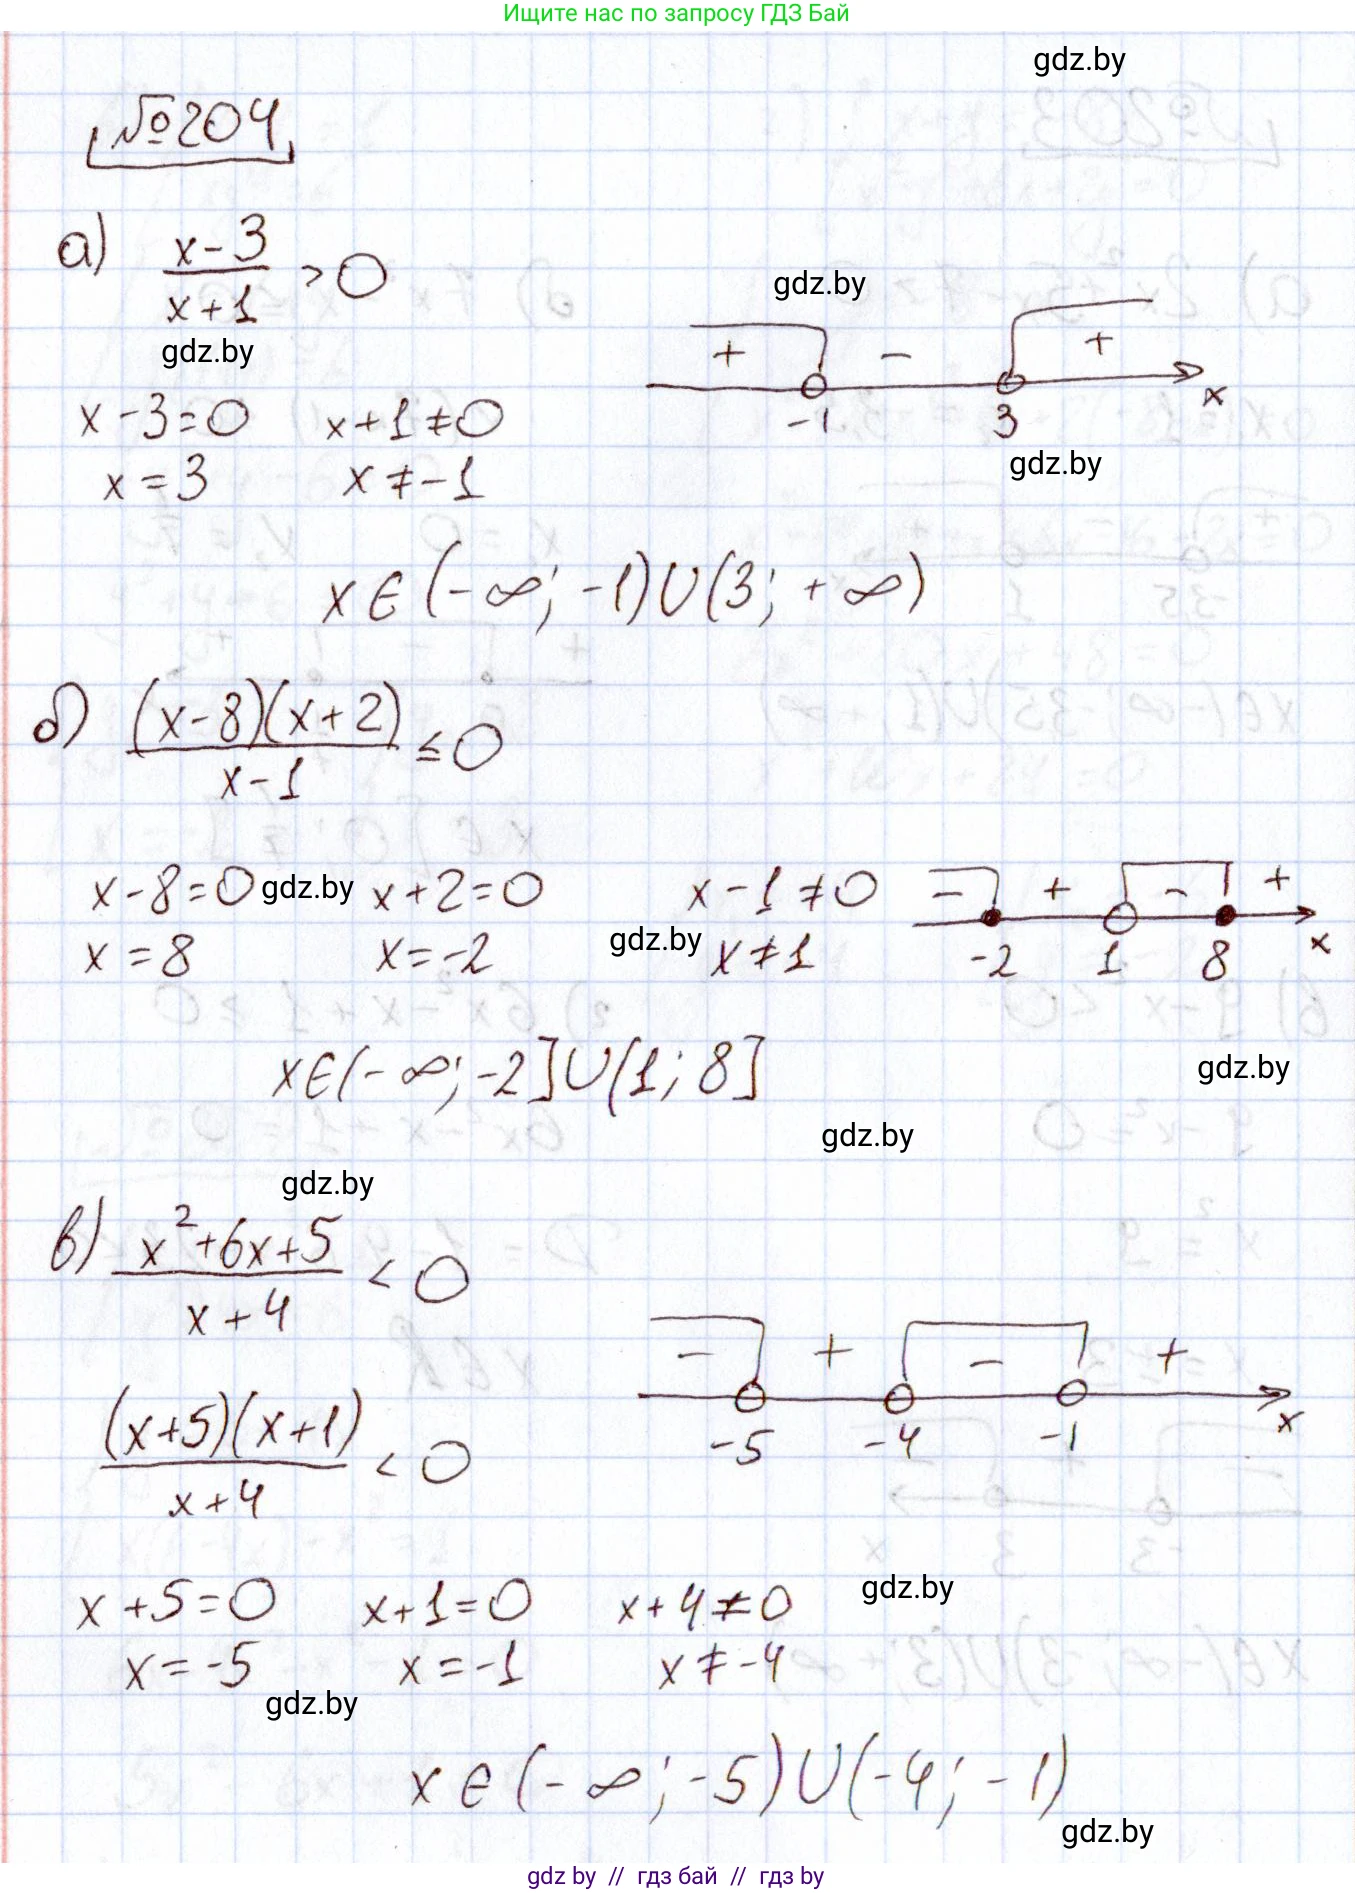 Ищите нас по запросу ГДЗ Бай
gdz.by
№204
а) (x-3)/(x+1) > 0
gdz.by
gdz.by
+ - +
-1 3 x
x-3=0 x+1≠0
x=3 x≠-1
gdz.by
x∈(-∞; -1)∪(3; +∞)
б) ((x-8)(x+2))/(x-1) ≤ 0
x-8=0 x+2=0 x-1≠0
gdz.by
x=8 x=-2 x≠1
gdz.by
- + - +
-2 1 8 x
x∈(-∞; -2]∪(1; 8]
gdz.by
gdz.by
gdz.by
в) (x²+6x+5)/(x+4) < 0
- + - +
-5 -4 -1 x
((x+5)(x+1))/(x+4) < 0
x+5=0 x+1=0 x+4≠0
gdz.by
x=-5 x=-1 x≠-4
gdz.by
x∈(-∞; -5)∪(-4; -1)
gdz.by
gdz by // гдз бай // гдз by